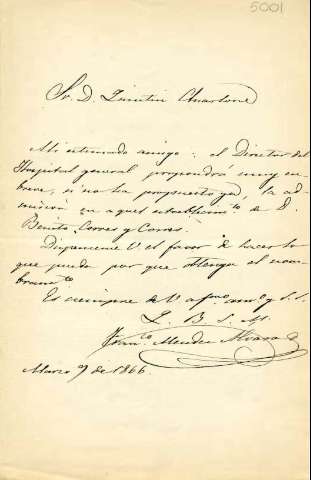 5001
Sr. D. Quintin Chiarlone
Mi estimado amigo: el Director del
Hospital general propondrá muy en
breve, si no ha propuesto ya, la ad-
mision en aquel establecim.to de D.
Benito Correa y Correa.
Dispenseme V el favor de hacer lo
que pueda por que obtenga el nom-
bram.to
Es siempre de V af.mo am.o y s.s.
Q. B. S. M.
Fran.co Mendez Alvaro
Marzo 9 de 1866.